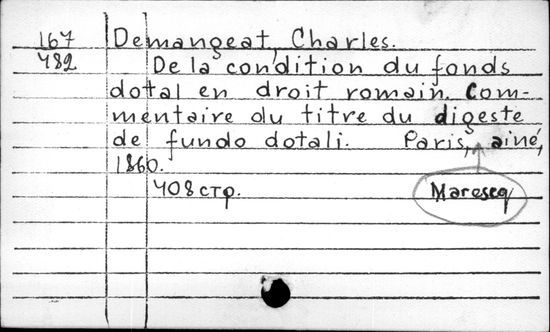 167 Demangeat, Charles.
482 De la condition du fonds
dotal en droit romain. Com-
mentaire du titre du digeste
de fundo dotali. Paris, ainé,
1860.
408 стр. Marescq